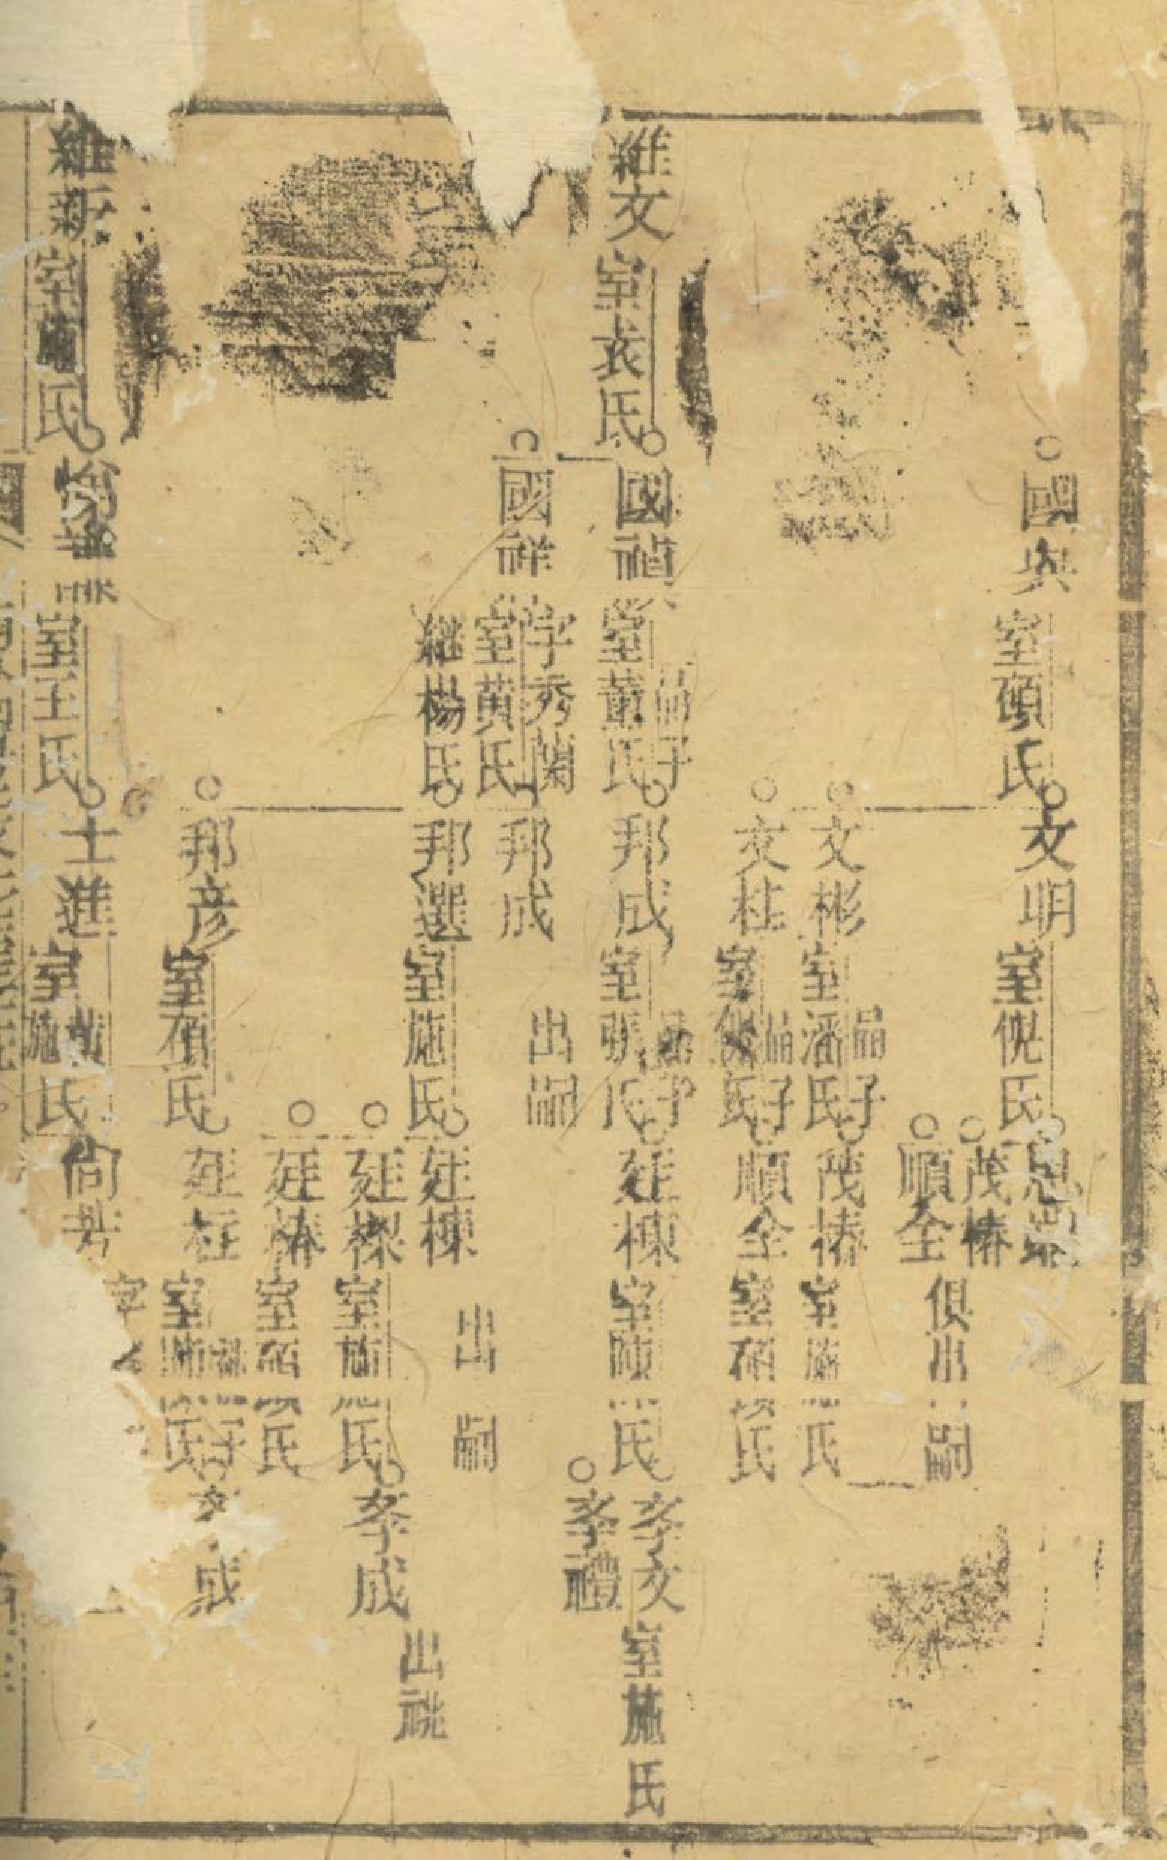 國興
室顧氏
文明
室倪氏
茂椿
順全
俱出嗣
文彬
室潘氏
嗣子
茂椿
室施氏
文柱
室倪氏
嗣子
順全
室顧氏
維文
室袁氏
國禎
室董氏
嗣子
邦成
室張氏
嗣子
廷棟
室陳氏
孝文
室施氏
孝禮
國祥
字秀蘭
室黃氏
繼楊氏
邦成
出嗣
邦選
室施氏
廷棟
出嗣
廷樑
室施氏
孝成
出祧
廷椿
室顧氏
邦彦
室顧氏
廷柱
室施氏
子
成
維新
室施氏
室王氏
士進
室黃施氏
尚芳
字